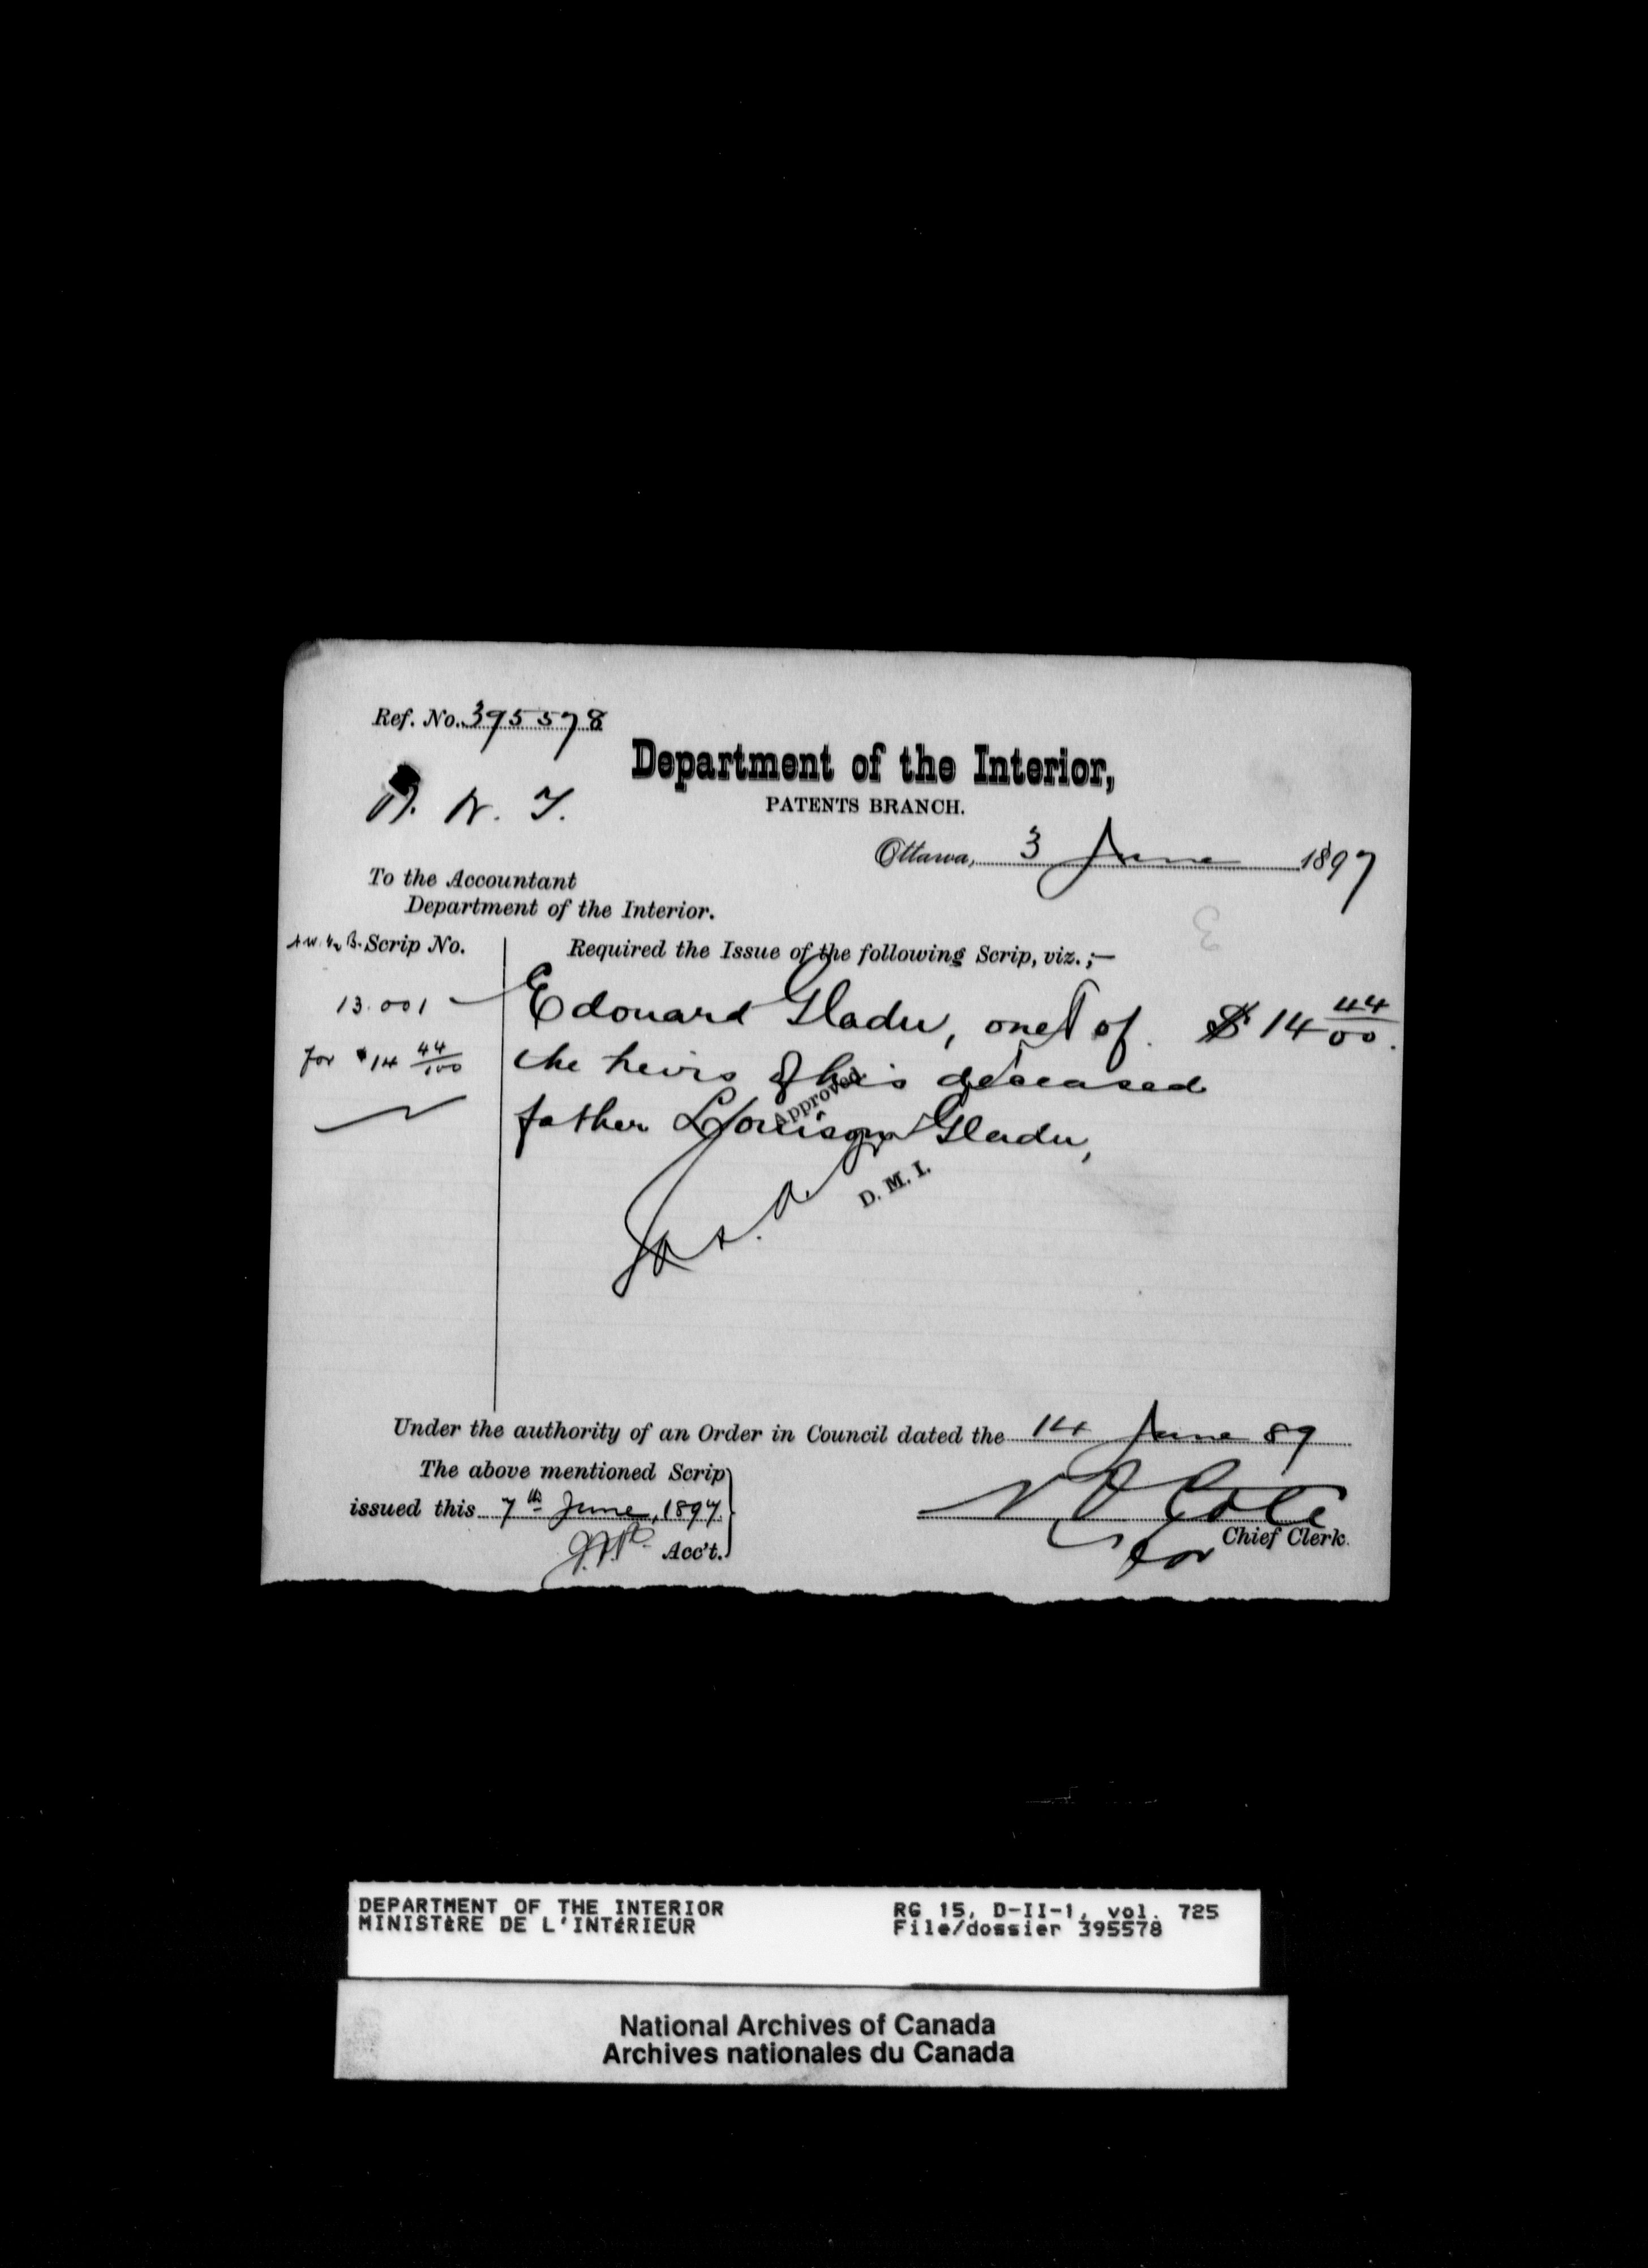 Ref. No. 395578
N. W. T.
Department of the Interior,
PATENTS BRANCH.
Ottawa, 3 June 1897
To the Accountant
Department of the Interior.
Scrip No.
Required the Issue of the following Scrip, viz.;—
13.001
Edouard Gladu, one of $14 44/00.
for $14 44/100
the heirs of his deceased
father Louison Gladu,
Approved
D. M. I.
Under the authority of an Order in Council dated the 14 June 89
The above mentioned Scrip
issued this 7th June, 1897.
Acc't.
N O Coté
for Chief Clerk.
DEPARTMENT OF THE INTERIOR RG 15, D-II-1, vol. 725
MINISTÈRE DE L'INTÉRIEUR File/dossier 395578
National Archives of Canada
Archives nationales du Canada